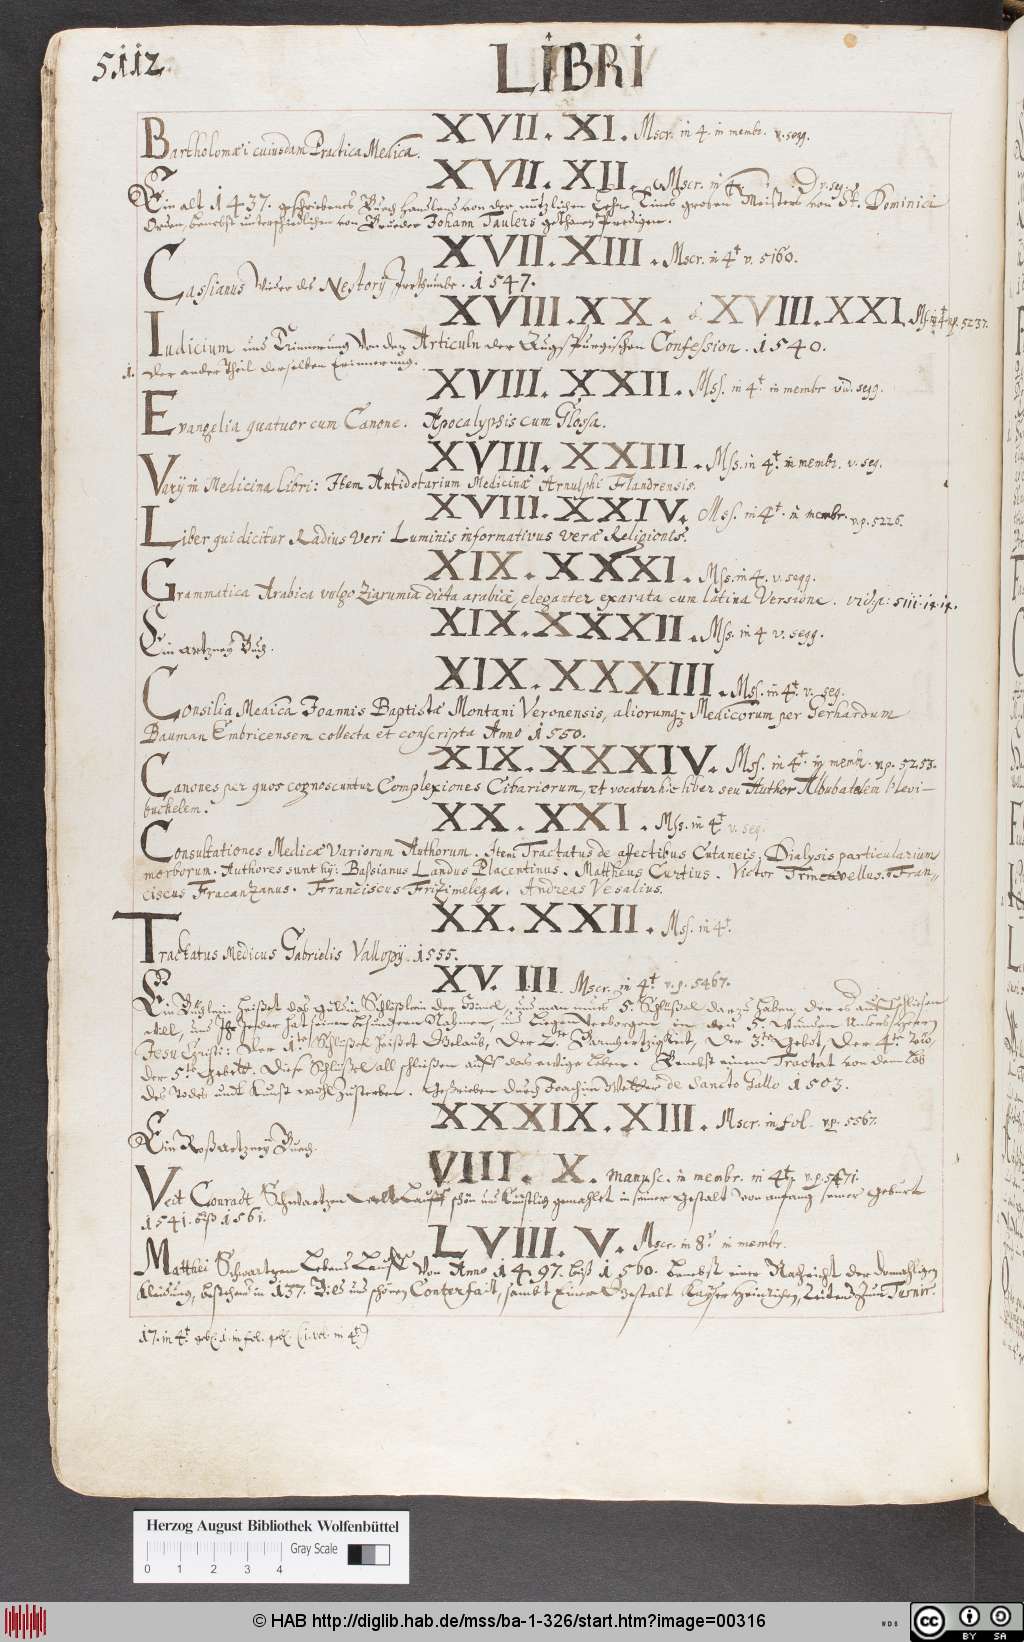 5112.
LIBRI
XVII. XI. Mscr. in 4. in membr. v. seqq.
Bartholomæi cuiusdam Practica Medica.
XVII. XII. Mscr. in 4t v. seq.
Ein alt 1437. geschriebenes Buch von der nützlichen Lehre Eines großen Meisters von St. Dominici
Orden, benebst unterschiedlichen von Brueder Johann Taulers gethanen Predigen.
XVII. XIII. Mscr. in 4t v. 5160.
Cassianus Wieder des Nestorij Irrthumbe. 1547.
XVIII. XX. & XVIII. XXI. Mss. in 4t vp. 5237.
Iudicium und Erinnerung Von den Articuln der Augspurgischen Confession. 1540.
Der ander Theil derselben Erinnerung.
XVIII. XXII. Mss. in 4t in membr. vid. seqq.
Evangelia quatuor cum Canone. Apocalypsis cum Glossa.
XVIII. XXIII. Mss. in 4t. in membr. v. seq.
Varij in Medicina Libri: Item Antidotarium Medicinæ Arnulphi Flandrensis.
XVIII. XXIV. Mss. in 4t. in membr. vp. 5226.
Liber qui dicitur Radius Veri Luminis informativus veræ Religionis.
XIX. XXXI. Mss. in 4. v. seqq.
Grammatica Arabica vulgo Ziarumia dicta arabicè, eleganter exarata cum latina Versione.
XIX. XXXII. Mss. in 4 v. seqq.
Ein artzney Buch.
XIX. XXXIII. Mss. in 4t. v. seq.
Consilia Medica Joannis Baptistæ Montani Veronensis, aliorumq; Medicorum per Gerhardum
Bauman Embricensem collecta et conscripta Anno 1550.
XIX. XXXIV. Mss. in 4t. in membr. vp. 5253.
Canones per quos cognoscuntur Complexiones Cibariorum, et vocatur hic liber seu Author Albubatelem Klevi-
buchelem.
XX. XXI. Mss. in 4t v. seq.
Consultationes Medicæ Variorum Authorum. Item Tractatus de affectibus Cutaneis. Dialysis particularium
morborum. Authores sunt hij: Bassianus Landus Placentinus. Mattheus Curtius. Victor Trincavellus. Fran-
ciscus Fracanzanus. Franciscus Frizimelega. Andreas Vesalius.
XX. XXII. Mss. in 4t.
Tractatus Medicus Gabrielis Vallopij. 1555.
XV. III. Mscr. in 4t v. p. 5467.
Ein Büchlein heißet das gulden Schlößlein der Himel, und man mues 5. Schlüßel darzu haben, der es aufschliesen
will, und Ihr Jeder hat seinen besundren Nahmen, und Liegen verborgen in den 5. Wunden Unsers Herren
Jesu Christi: Der 1te Schlüßel heisset Gelaub, Der 2te Barmhertzigkeit, Der 3te Gebot, Der 4te
der 5te Gebett. Diese Schlüßel all schließen auff das ewige Leben. Benebst einem Tractat von dem Lob
des Todes undt Kunst wohl zusterben. Geschrieben durch Joachim de Sancto Gallo 1503.
XXXIX. XIII. Mscr. in fol. vp. 5567.
Ein Roßartzney Buech.
VIII. X. manusc. in membr. in 4t. v. p. 5471.
Veit Conradt Schwartzen Welt Lauff schön und künstlich gemahlet in seiner Gestalt von anfang seiner Geburt
1541. biß 1561.
LVIII. V. Mscr. in 8v in membr.
Matthei Schwartzen Lebens Lauff Von Anno 1497. biß 1560. benebst einer Nachricht der domahligen
Kleidung, bestehend in 137. Bies und schönen Conterfait, sambt Einer Gestalt Kayser Heinrichen, Leütend zum Turnir.
17. in 4t. geb. 1. in fol. geb. (1. vol. in 4t)
Herzog August Bibliothek Wolfenbüttel
Gray Scale
0 1 2 3 4
© HAB http://diglib.hab.de/mss/ba-1-326/start.htm?image=00316
WDB
cc BY SA